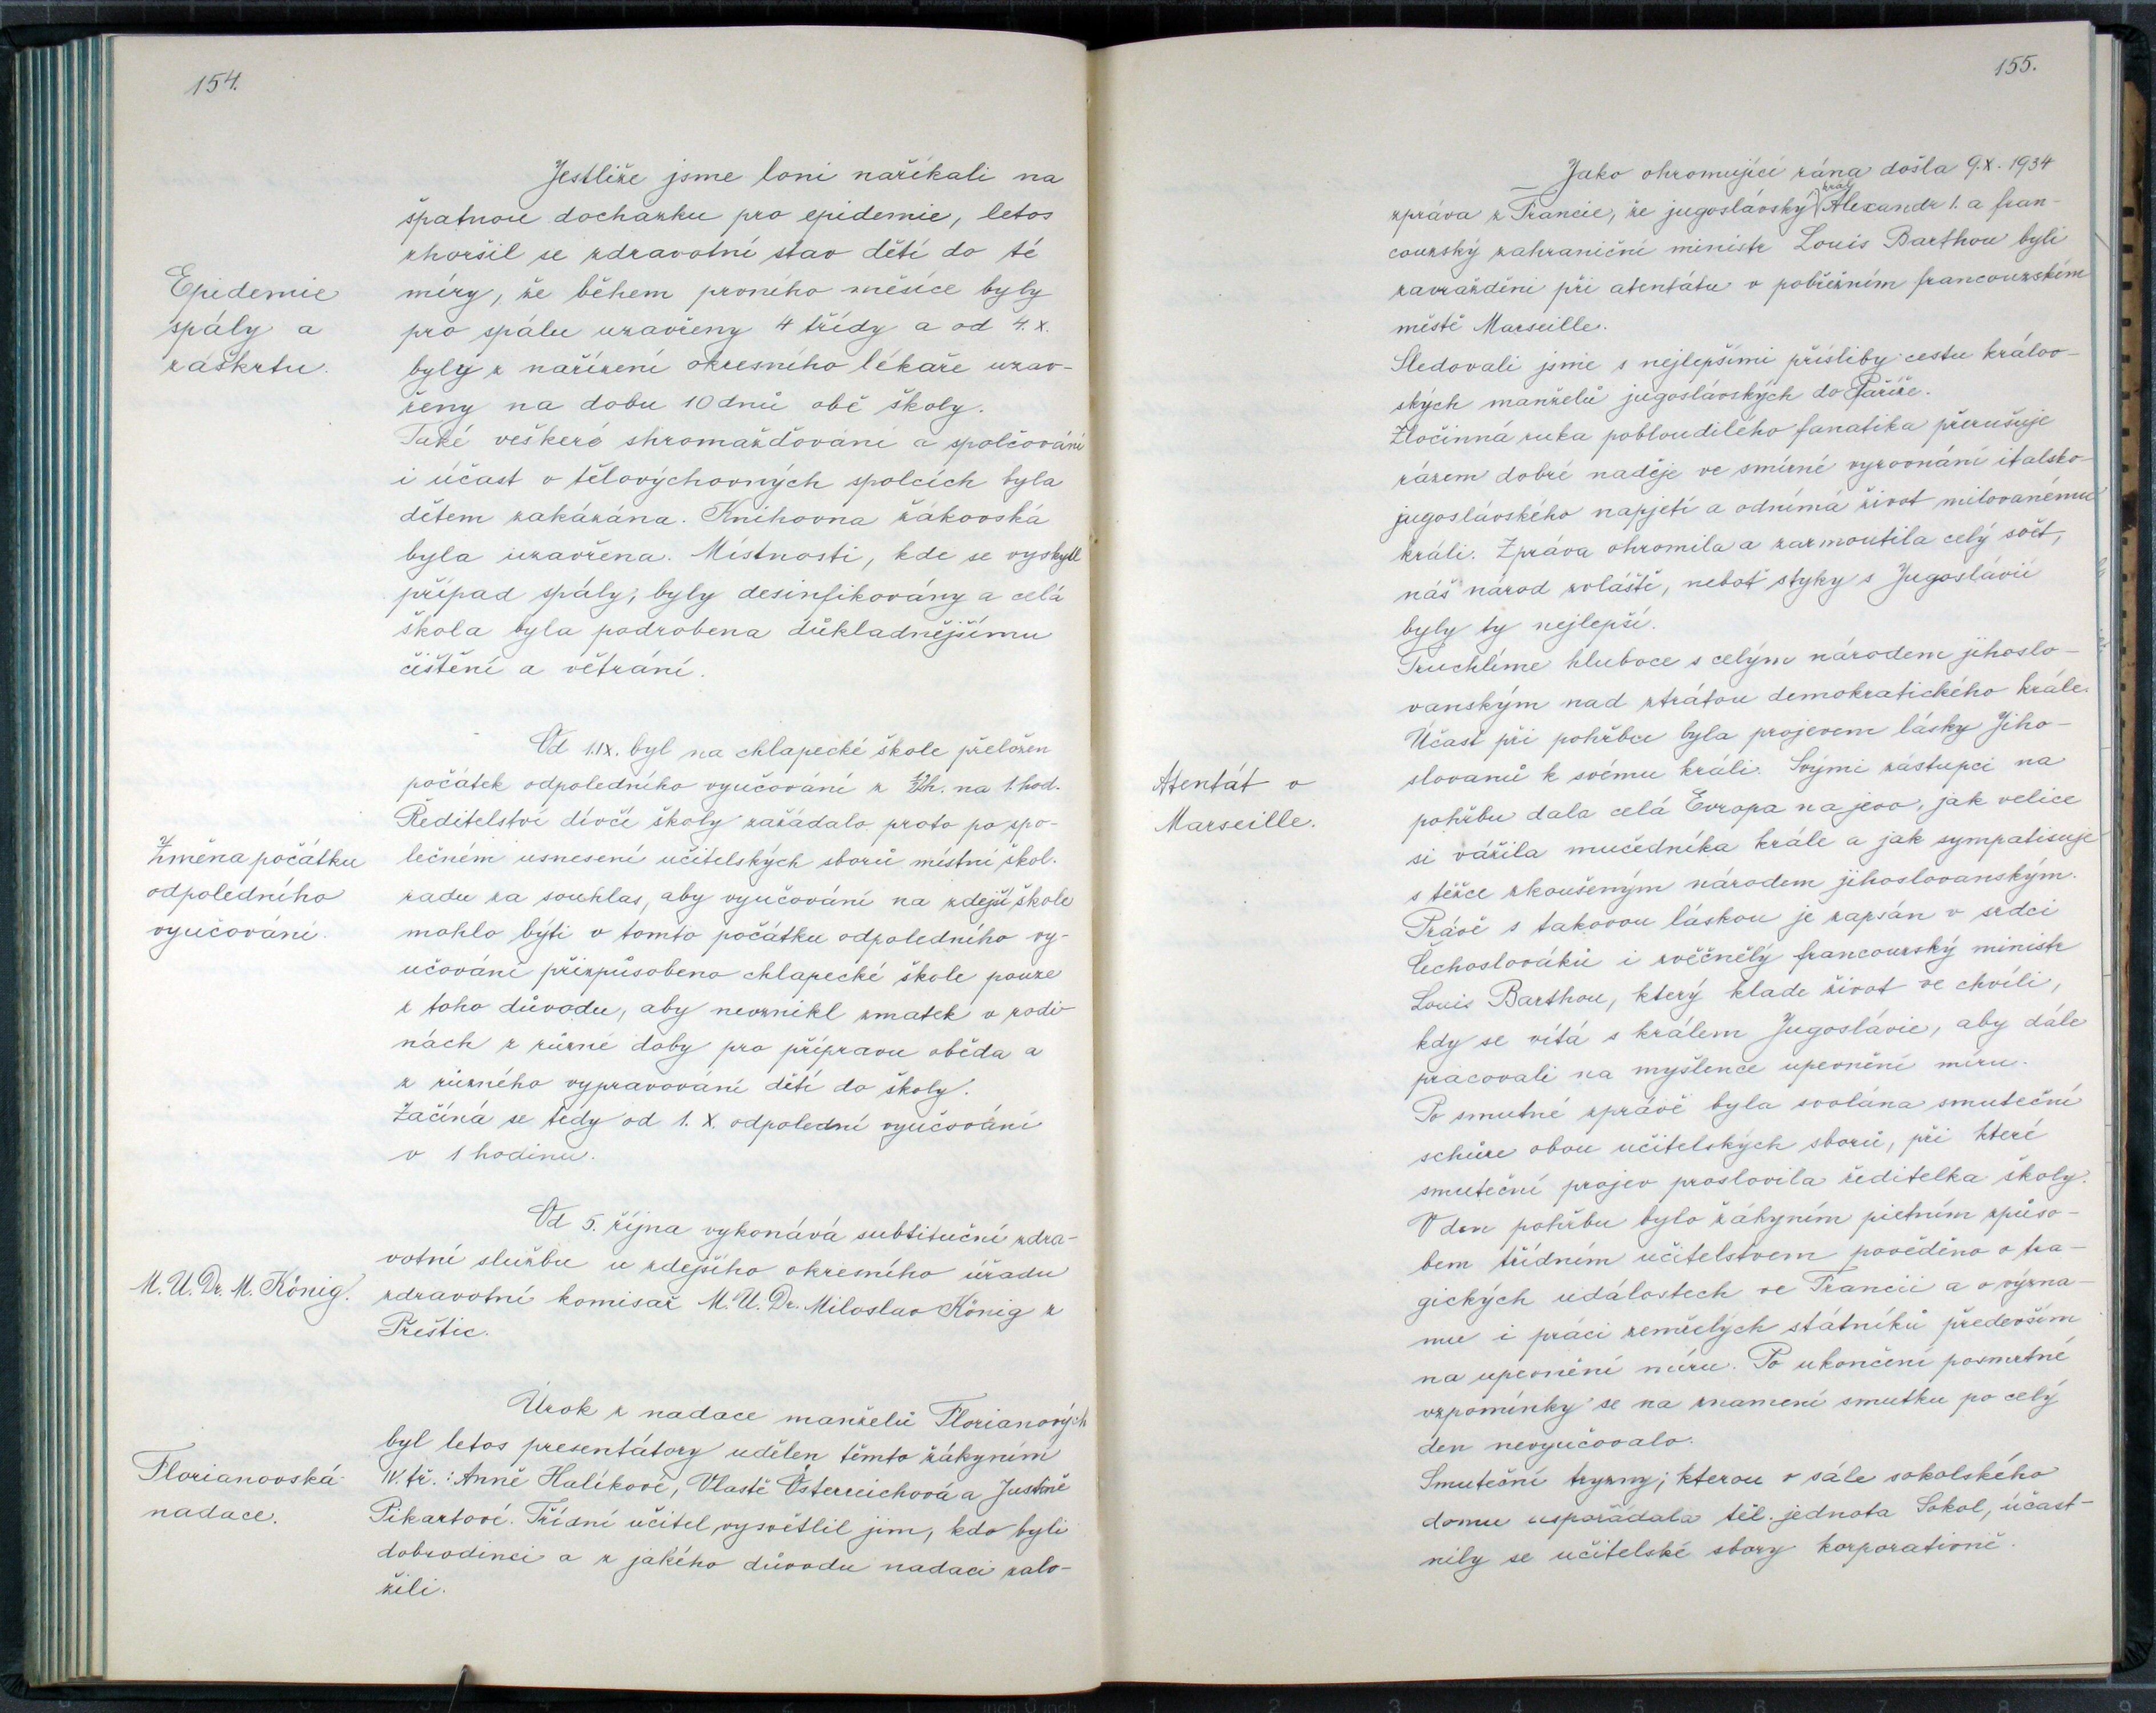 154.
Jestliže jsme loni naříkali na
špatnou docházku pro epidemie, letos
zhoršil se zdravotní stav dětí do té
Epidemie
spály a
záškrtu.
míry, že během prvního měsíce byly
pro spálu uzavřeny 4 třídy a od 4. X.
byly z nařízení okresního lékaře uzav-
řeny na dobu 10 dnů obě školy.
Také veškeré shromažďování a spolčování
i účast v tělovýchovných spolcích byla
dětem zakázána. Knihovna žákovská
byla uzavřena. Místnosti, kde se vyskytl
případ spály, byly desinfikovány a celá
škola byla podrobena důkladnějšímu
čištění a větrání.
Od 1.IX. byl na chlapecké škole přeložen
počátek odpoledního vyučování z ½2h. na 1.hod.
Ředitelství dívčí školy zažádalo proto po spo-
Změna počátku
odpoledního
vyučování.
lečném usnesení učitelských sborů místní škol.
radu za souhlas, aby vyučování na zdejší škole
mohlo býti v tomto počátku odpoledního vy-
učování přizpůsobeno chlapecké škole pouze
z toho důvodu, aby nevznikl zmatek v rodi-
nách z různé doby pro přípravu oběda a
z různého vypravování dětí do školy.
Začíná se tedy od 1. X. odpolední vyučování
v 1 hodinu.
Od 5. října vykonává subtituční zdra-
votní službu u zdejšího okresního úřadu
M. U. Dr. M. König.
zdravotní komisař M. U. Dr. Miloslav König z
Přeštic.
Úrok z nadace manželů Florianových
byl letos presentátory udělen těmto žákyním
Florianovská
nadace.
IV. tř.: Anně Halíkové, Vlastě Österreichová a Justině
Pikartové. Třídní učitel vysvětlil jim, kdo byli
dobrodinci a z jakého důvodu nadaci zalo-
žili.
155.
Jako ohromující rána došla 9.X. 1934
zpráva z Francie, že jugoslávský král Alexandr 1. a fran-
couzský zahraniční ministr Louis Barthou byli
zavražděni při atentátu v pobřežním francouzském
městě Marseille.
Sledovali jsme s nejlepšími přísliby cestu králov-
ských manželů jugoslávských do Paříže.
Zločinná ruka pobloudilého fanatika přerušuje
rázem dobré naděje ve smírné vyrovnání italsko-
jugoslávského napjetí a odnímá život milovanému
králi. Zpráva ohromila a zarmoutila celý svět,
náš národ zvláště, neboť styky s Jugoslávií
byly ty nejlepší.
Truchlíme hluboce s celým národem jihoslo-
vanským nad ztrátou demokratického krále.
Účast při pohřbu byla projevem lásky Jiho-
Atentát v
Marseille.
slovanů k svému králi. Svými zástupci na
pohřbu dala celá Evropa na jevo, jak velice
si vážila mučedníka krále a jak sympatisuje
s těžce zkoušeným národem jihoslovanským.
Právě s takovou láskou je zapsán v srdci
Čechoslováků i zvěčnělý francouzský ministr
Louis Barthou, který klade život ve chvíli,
kdy se vítá s králem Jugoslávie, aby dále
pracovali na myšlence upevnění míru.
Po smutné zprávě byla svolána smuteční
schůze obou učitelských sborů, při které
smuteční projev proslovila ředitelka školy.
V den pohřbu bylo žákyním pietním způso-
bem třídním učitelstvem pověděno o tra-
gických událostech ve Francii a o význa-
mu i práci zemřelých státníků především
na upevnění míru. Po ukončení posmrtné
vzpomínky se na znamení smutku po celý
den nevyučovalo.
Smuteční tryzny, kterou v sále sokolského
domu uspořádala těl. jednota Sokol, účast-
nily se učitelské sbory korporativně.